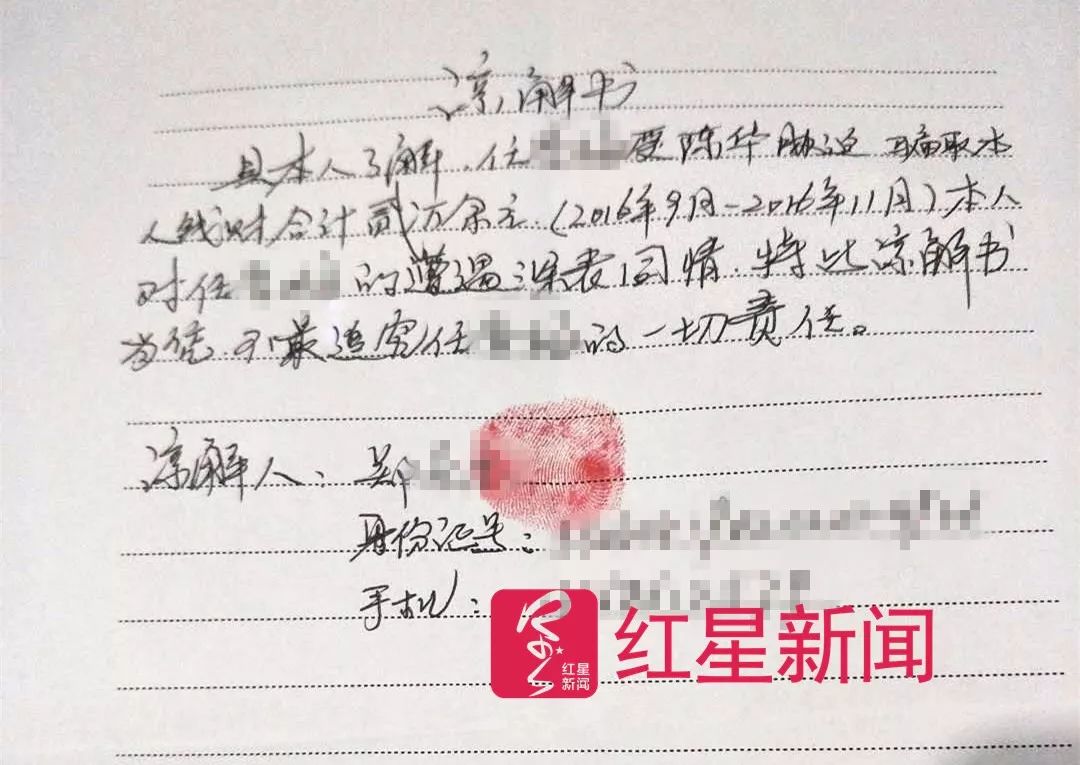 凉解书
具本人了解.任受陈华胁迫骗取本
人钱财合计贰万余元.(2016年9月-2016年11月)本人
对任的遭遇深表同情.特此凉解书
为凭.不追究任的一切责任。
凉解人:郑
身份证号:
手机:
红星新闻
红星
新闻